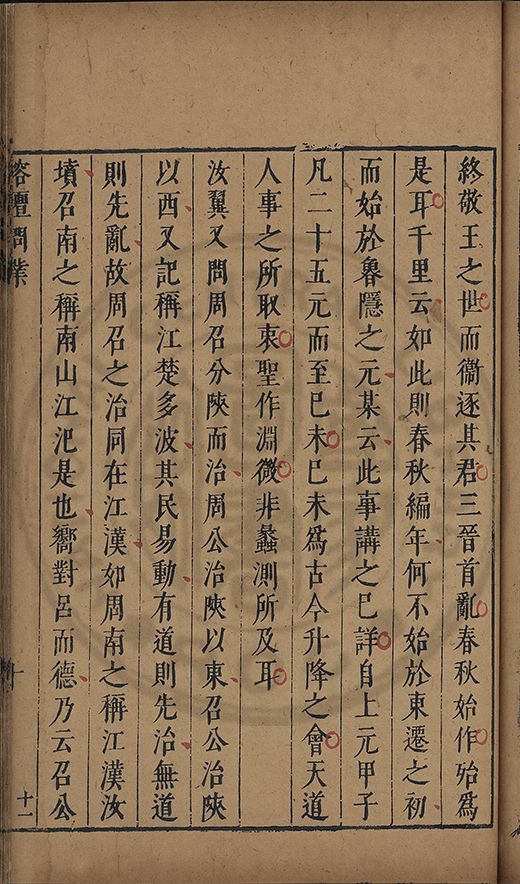 終敬王之世而衞逐其君三晉首亂春秋始作殆爲
是耳千里云如此則春秋編年何不始於東遷之初
而始於魯隱之元某云此事講之已詳自上元甲子
凡二十五元而至己未己未爲古今升降之會天道
人事之所取衷聖作淵微非蠡測所及耳
汝翼又問周召分陝而治周公治陝以東召公治陝
以西又記稱江楚多波其民易動有道則先治無道
則先亂故周召之治同在江漢如周南之稱江漢汝
墳召南之稱南山江汜是也嚮對呂而德乃云召公
榕壇問業
十一